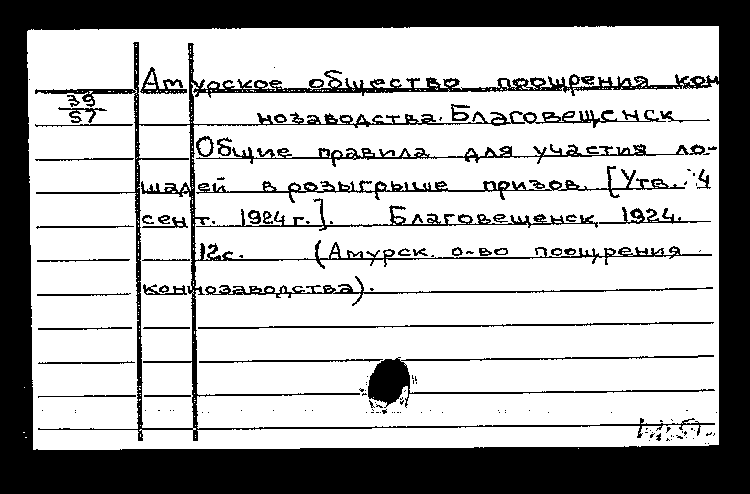 Амурское общество поощрения кон
39
57
нозаводства. Благовещенск.
Общие правила для участия ло-
шадей в розыгрыше призов. [Утв. 4
сент. 1924 г.]. Благовещенск, 1924.
12с. (Амурск. о-во поощрения
коннозаводства).